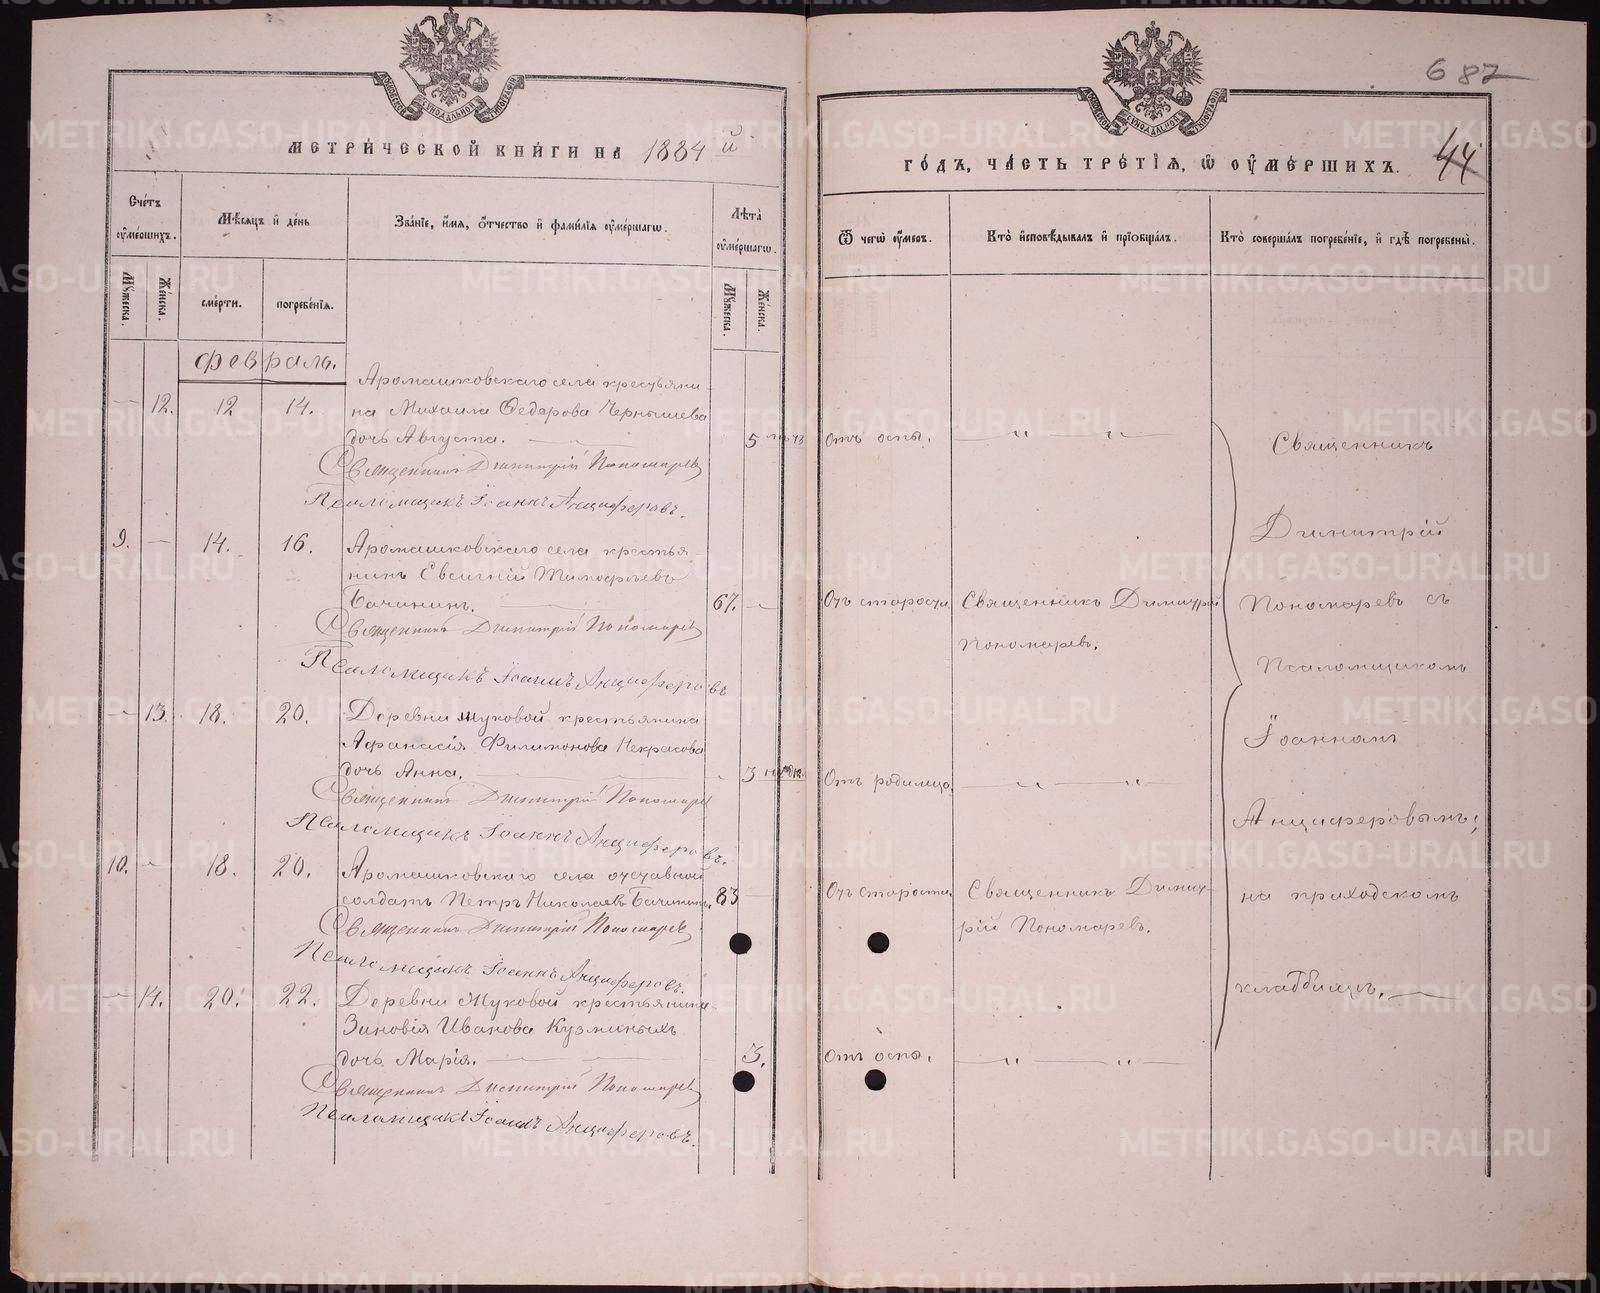 687
МЕТРИЧЕСКОЙ КНИГИ НА 1884 й
ГОДЪ, ЧАСТЬ ТРЕТІЯ, Ѿ ОУМЕРШИХЪ.
44
Счетъ оумершихъ.
Мѣсяцъ и день
Званіе, имя, отчество и фамилія оумершагѡ.
Лѣта оумершагѡ.
Ѿ чегѡ оумеръ.
Кто исповѣдывалъ и пріобщалъ.
Кто совершалъ погребеніе, и гдѣ погребены.
Мужеска.
Женска.
смерти.
погребенія.
Мужеска.
Женска.
Февраль.
Аромашковскаго села крестьяни-
12. 12 14. на Михаила Ѳедорова Чернышева
дочь Августа. 5 Отъ оспы. — " — "
Священникъ Димитрій Пономаревъ
Псаломщикъ Іоаннъ Анциферовъ.
9. — 14. 16. Аромашковскаго села крестья-
нинъ Евсигній Тимофѣевъ
Бачининъ. 67. — Отъ старости Священникъ Димитрій
Пономаревъ.
Священникъ Димитрій Пономаревъ
Псаломщикъ Іоаннъ Анциферовъ
— 13. 18. 20. Деревни Муковой крестьянина
Афанасія Филимонова Некрасова
дочь Анна. 3 нед. Отъ родимца. — " — "
Священникъ Димитрій Пономаревъ
Псаломщикъ Іоаннъ Анциферовъ.
10. — 18. 20. Аромашковскаго села отставной
солдатъ Петръ Николаевъ Бачининъ. 83 — Отъ старости. Священникъ Димит-
рій Пономаревъ.
Священникъ Димитрій Пономаревъ
Псаломщикъ Іоаннъ Анциферовъ.
— 14. 20. 22. Деревни Муковой крестьянина
Зиновія Иванова Кузминыхъ
дочь Марія. 3. Отъ оспы. — " — "
Священникъ Димитрій Пономаревъ
Псаломщикъ Іоаннъ Анциферовъ.
Священникъ
Димитрій
Пономаревъ съ
Псаломщикомъ
Іоанномъ
Анциферовымъ,
на приходскомъ
кладбищѣ.
METRIKI.GASO-URAL.RU